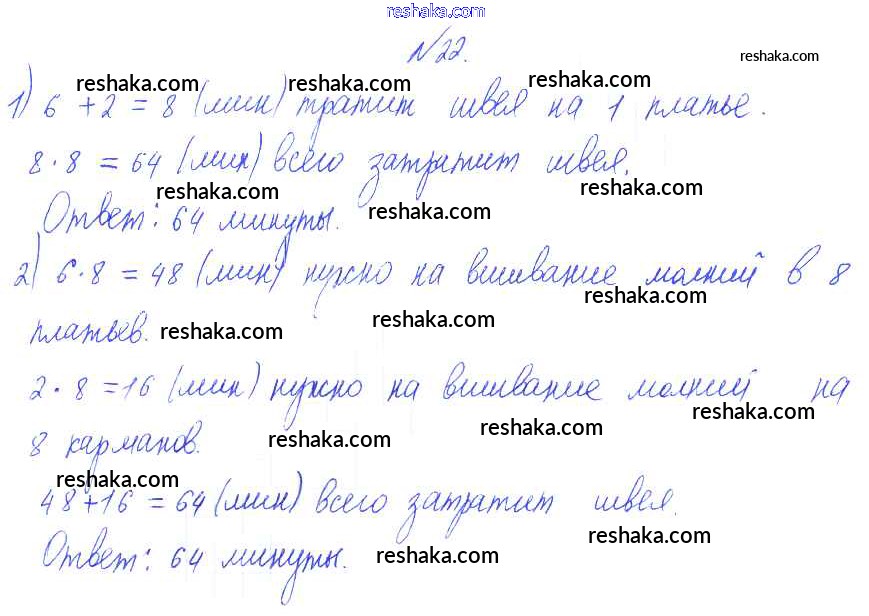 reshaka.com
№22. reshaka.com
reshaka.com reshaka.com reshaka.com
1) 6 + 2 = 8 (мин) тратит швея на 1 платье.
8 · 8 = 64 (мин) всего затратит швея.
reshaka.com reshaka.com
Ответ: 64 минуты. reshaka.com
2) 6 · 8 = 48 (мин) нужно на вшивание молний в 8
reshaka.com
платьев. reshaka.com reshaka.com
2 · 8 = 16 (мин) нужно на вшивание молний на
reshaka.com
8 карманов. reshaka.com reshaka.com
reshaka.com
48 + 16 = 64 (мин) всего затратит швея.
reshaka.com
Ответ: 64 минуты. reshaka.com